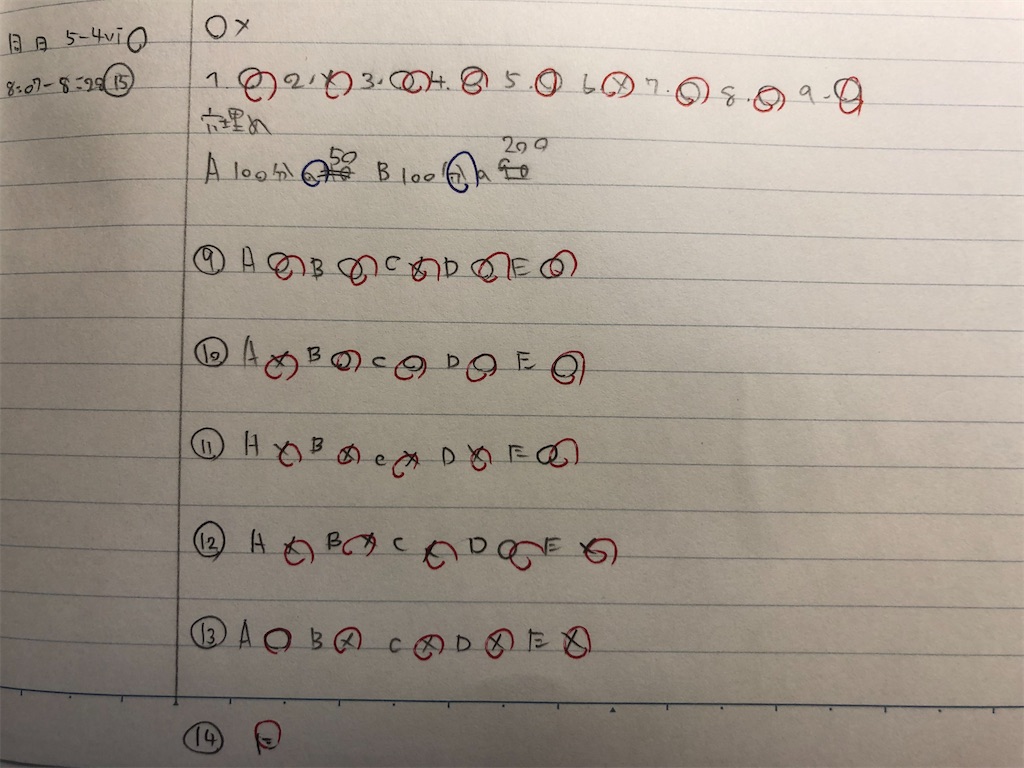 ○×
月日 5-4vi○
8:07-8:28⑮
1.○ 2.× 3.○ 4.○ 5.○ 6× 7.○ 8.○ 9.○
穴埋め
A 100分の 50 B 100分の 200
⑨ A ○ B ○ C × D ○ E ○
⑩ A × B ○ C ○ D ○ E ○
⑪ A × B × C × D × E ○
⑫ A × B × C × D ○ E ×
⑬ A ○ B × C × D × E ×
⑭ E